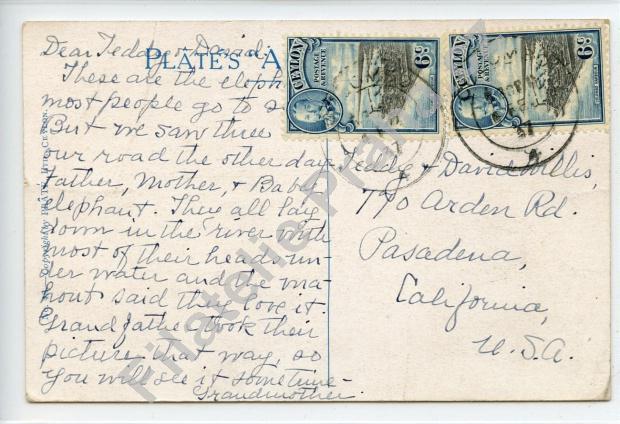 Dear Teddy & David:
PLATE'S "A
These are the eleph
most people go to s
But we saw three
our road the other day
Father, Mother, & Baby
elephant. They all lay
down in the river with
most of their heads un-
der water and the ma-
hout said they love it.
Grandfather took their
picture that way, so
you will see it sometime -
Grandmother
CEYLON
POSTAGE
& REVENUE
6c
CEYLON
POSTAGE
& REVENUE
6c
Teddy & David Willis,
770 Arden Rd.
Pasadena,
California,
U.S.A.
Copyright by PLATÉ LTD., CEYLON.
Filatelie Pra